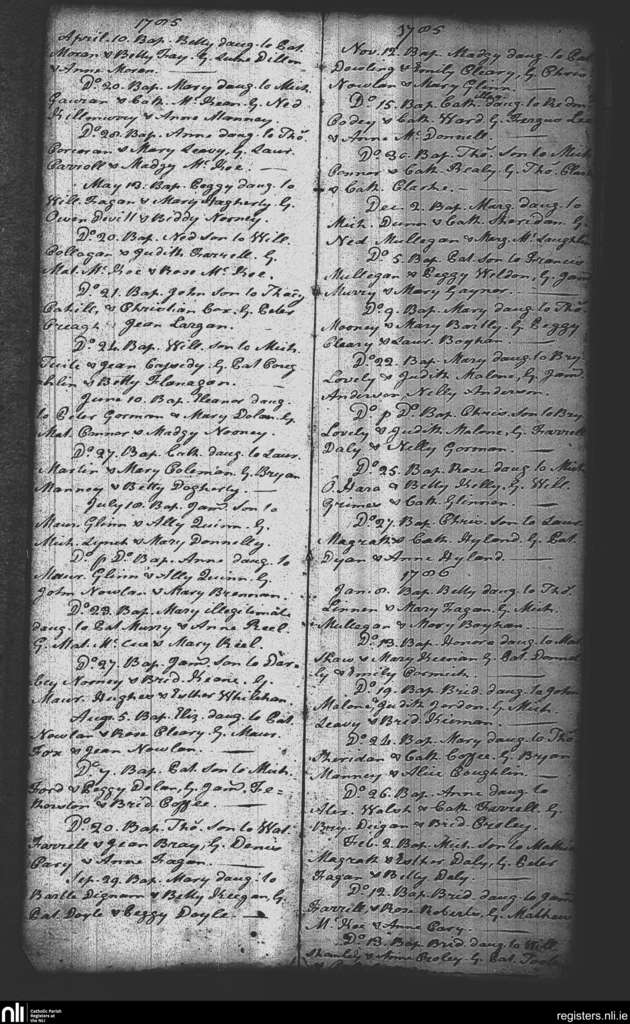 1785
April. 10. Bap. Betty daug. to Pat.
Moran & Betty Fay. G. Luke Dillon
& Anne Moran.
Do. 20. Bap. Mary daug. to Mich.
Gavran & Cath. Mc Kean. G. Ned
Killmurry & Anne Manney.
Do. 28. Bap. Anne daug. to Tho.
Corcoran & Mary Leavy, G. Laur.
Carroll & Madgy Mc Kee.
May 13. Bap. Peggy daug. to
Will. Fagan & Mary Hagherty G.
Owen & Biddy Norney.
Do. 20. Bap. Ned son to Will.
Collogan & Judith Farrell. G.
Mat. Mc Kee & Rose Mc Kee.
Do. 21. Bap. John son to Thady
Cahill, & Christian Cox. G. Peter
Creagh Jean Largan.
Do. 24. Bap. Will. son to Mich.
Tuite & Jean G. Pat Coug
hlin & Betty Flanagan.
June 10. Bap. Eleanor daug.
to Peter Gorman & Mary Dolan. G.
Mat. Connor & Madgy Nooney.
Do. 27. Bap. Cath. daug. to Laur.
Martin & Mary Coleman, G. Bryan
Manney & Betty Dogherty.
July 10. Bap. Jam. son to
Maur. Glinn & Ally Quinn. G.
Mich. Lynch & Mary Donnelly.
Do. p Do. Bap. Anne daug. to
Maur. Glinn & Ally Quinn. G.
John Nowlan & Mary Brennan.
Do. 23. Bap. Mary illegitimate
daug. to Pat Murry & Anne Keel.
G. Mat. Mc Cue & Mary Keel.
Do. 27. Bap. Jam. son to Dar-
by Norney & Brid. Keane. G.
Maur. Hughes & Esther Whilehan.
Aug. 5. Bap. Eliz. daug. to Pat.
Nowlan & Rose Cleary. G. Maur.
Fox & Jean Nowlan.
Do. 7. Bap. Pat. son to Mich.
Ford & Peggy Dolan, G. Jam. Fe-
therston & Brid Coffee.
Do. 20. Bap. Tho. son to Wat.
Farrell & Jean Bray, G. Denis
Cary & Anne Fagan.
Sep. 29. Bap. Mary daug. to
Bartle Dignam & Betty Keegan, G.
Pat. Doyle & Peggy Doyle.
1785
Nov. 12. Bap. Madgy daug. to Pat
Dowling & Emily Cleary, G. Chris
Nowlan & Mary Glinn.
Do. 15. Bap. Cath. daug. to
Codey & Cath Ward G. Fergus Lee
& Anne Mc Donnell.
Do. 30. Bap. Tho. son to Mich
Connor & Cath. Realy. G. Tho. Clarke
& Cath. Clarke.
Dec. 2. Bap. Marg. daug. to
Mich. Dunn & Cath Sheridan. G.
Ned Mullegan & Marg. Mc Laughlin
Do. 5. Bap. Pat. son to Francis
Mullegan & Peggy Weldon, G. Jam
Murry & Mary Gaynor.
Do. 9. Bap. Mary daug. to Tho.
Mooney & Mary Bartly, G. Peggy
Cleary & Laur. Boyhan.
Do. 22. Bap. Mary daug. to Bry
Lovely & Judith Malone, G. Jam.
Anderson Nelly Anderson.
Do. p Do. Bap. Chris. son to Bry
Lovely & Judith Malone, G. Farrell
Daly & Nelly Gorman.
Do. 25. Bap. Rose daug. to Mich
O Hara & Betty Kelly. G. Will.
Grimes & Cath. Glinnon.
Do. 27. Bap. Chris. son to Laur
Magrath & Cath. Hyland. G. Pat.
Dyan & Anne Hyland.
1786
Jan. 8. Bap. Betty daug. to Tho.
Linnen & Mary Fagan. G. Mich.
Mullegan & Mary Boyhan.
Do. 13. Bap. Honora daug. to Mat
Shaw & Mary Keenan G. Pat. Donnel
ly & Emily Cormick.
Do. 19. Bap. Brid. daug. to John
Malone, Judith Jordon. G. Mich.
Leavy & Brid. Kiernan.
Do. 24. Bap. Mary daug. to Tho.
Sheridan & Cath Coffee. G. Bryan
Manney & Alice Coughlin.
Do. 26. Bap. Anne daug. to
Alex. Walsh & Cath Farrell. G.
Bry. Digan & Brid. Croley.
Feb. 2. Bap. Mich. son to Mathew
Magrath & Esther Daly, G. Peter
Fagan & Betty Daly.
Do. 12. Bap. Brid. daug. to Jam.
Farrell, & Rose Roberts, G. Mathew
Mc Kee & Anne Cary.
Do. 13. Bap. Brid. daug. to Will.
Shanley & Anne Croley G. Pat.
nli
Catholic Parish
Registers at
the NLI
registers.nli.ie